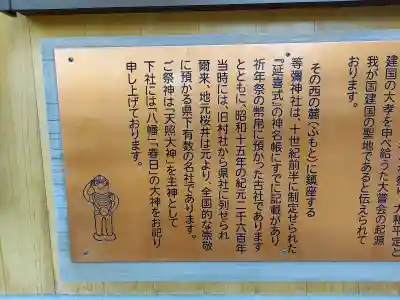 大和平定と
建国の大孝を申べ給うた大嘗会の起源
我が国建国の聖地であると伝えられて
おります。
その西の麓(ふもと)に鎮座する
等彌神社は、十世紀前半に制定せられた
『延喜式』の神名帳にすでに記載があり
祈年祭の幣帛に預かった古社であります
とともに、昭和十五年の紀元二千六百年
当時には、旧村社から県社に列せられ
爾来、地元桜井は元より、全国的な崇敬
に預かる県下有数の名社であります。
ご祭神は「天照大神」を主神として
下社には「八幡」「春日」の大神をお祀り
申し上げております。